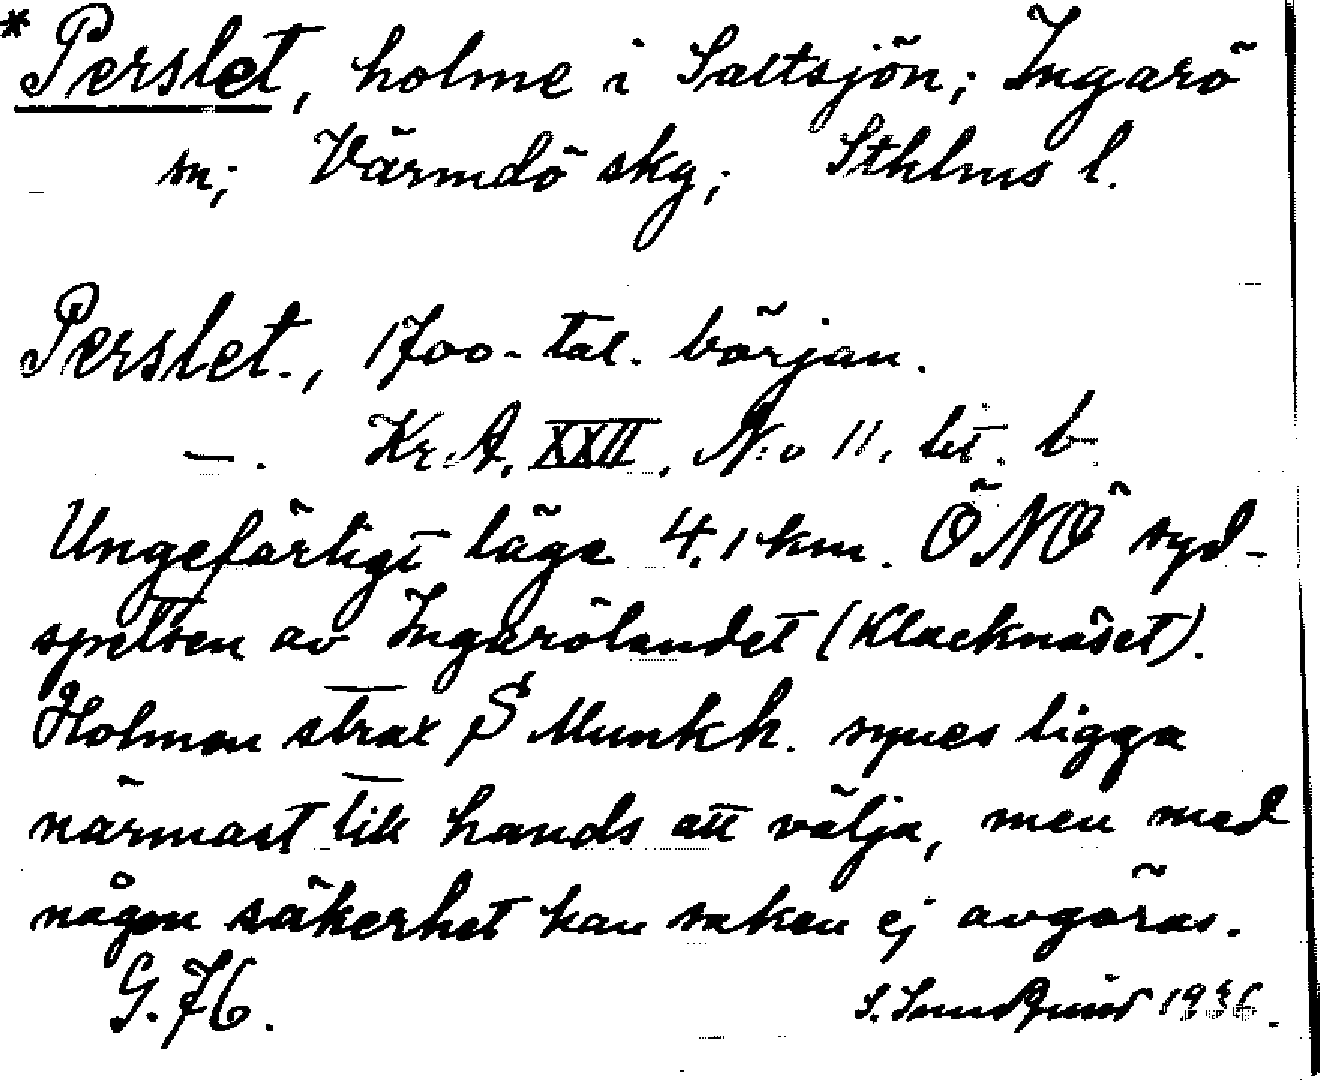 * Perslet, holme i Saltsjön; Ingarö
sn; Värmdö skg; Sthlms l.
Perslet., 1700-tal. början.
—. Kr.A. XXII, No 11. lit. b
Ungefärligt läge 4,1 km. ÖNÖ syd-
spetsen av Ingarölandet (Klacknäset).
Holmen strax S Munkh. synes ligga
närmast till hands att välja, men med
någon säkerhet kan saken ej avgöras.
G. 76.
S. Sundquist 1936.